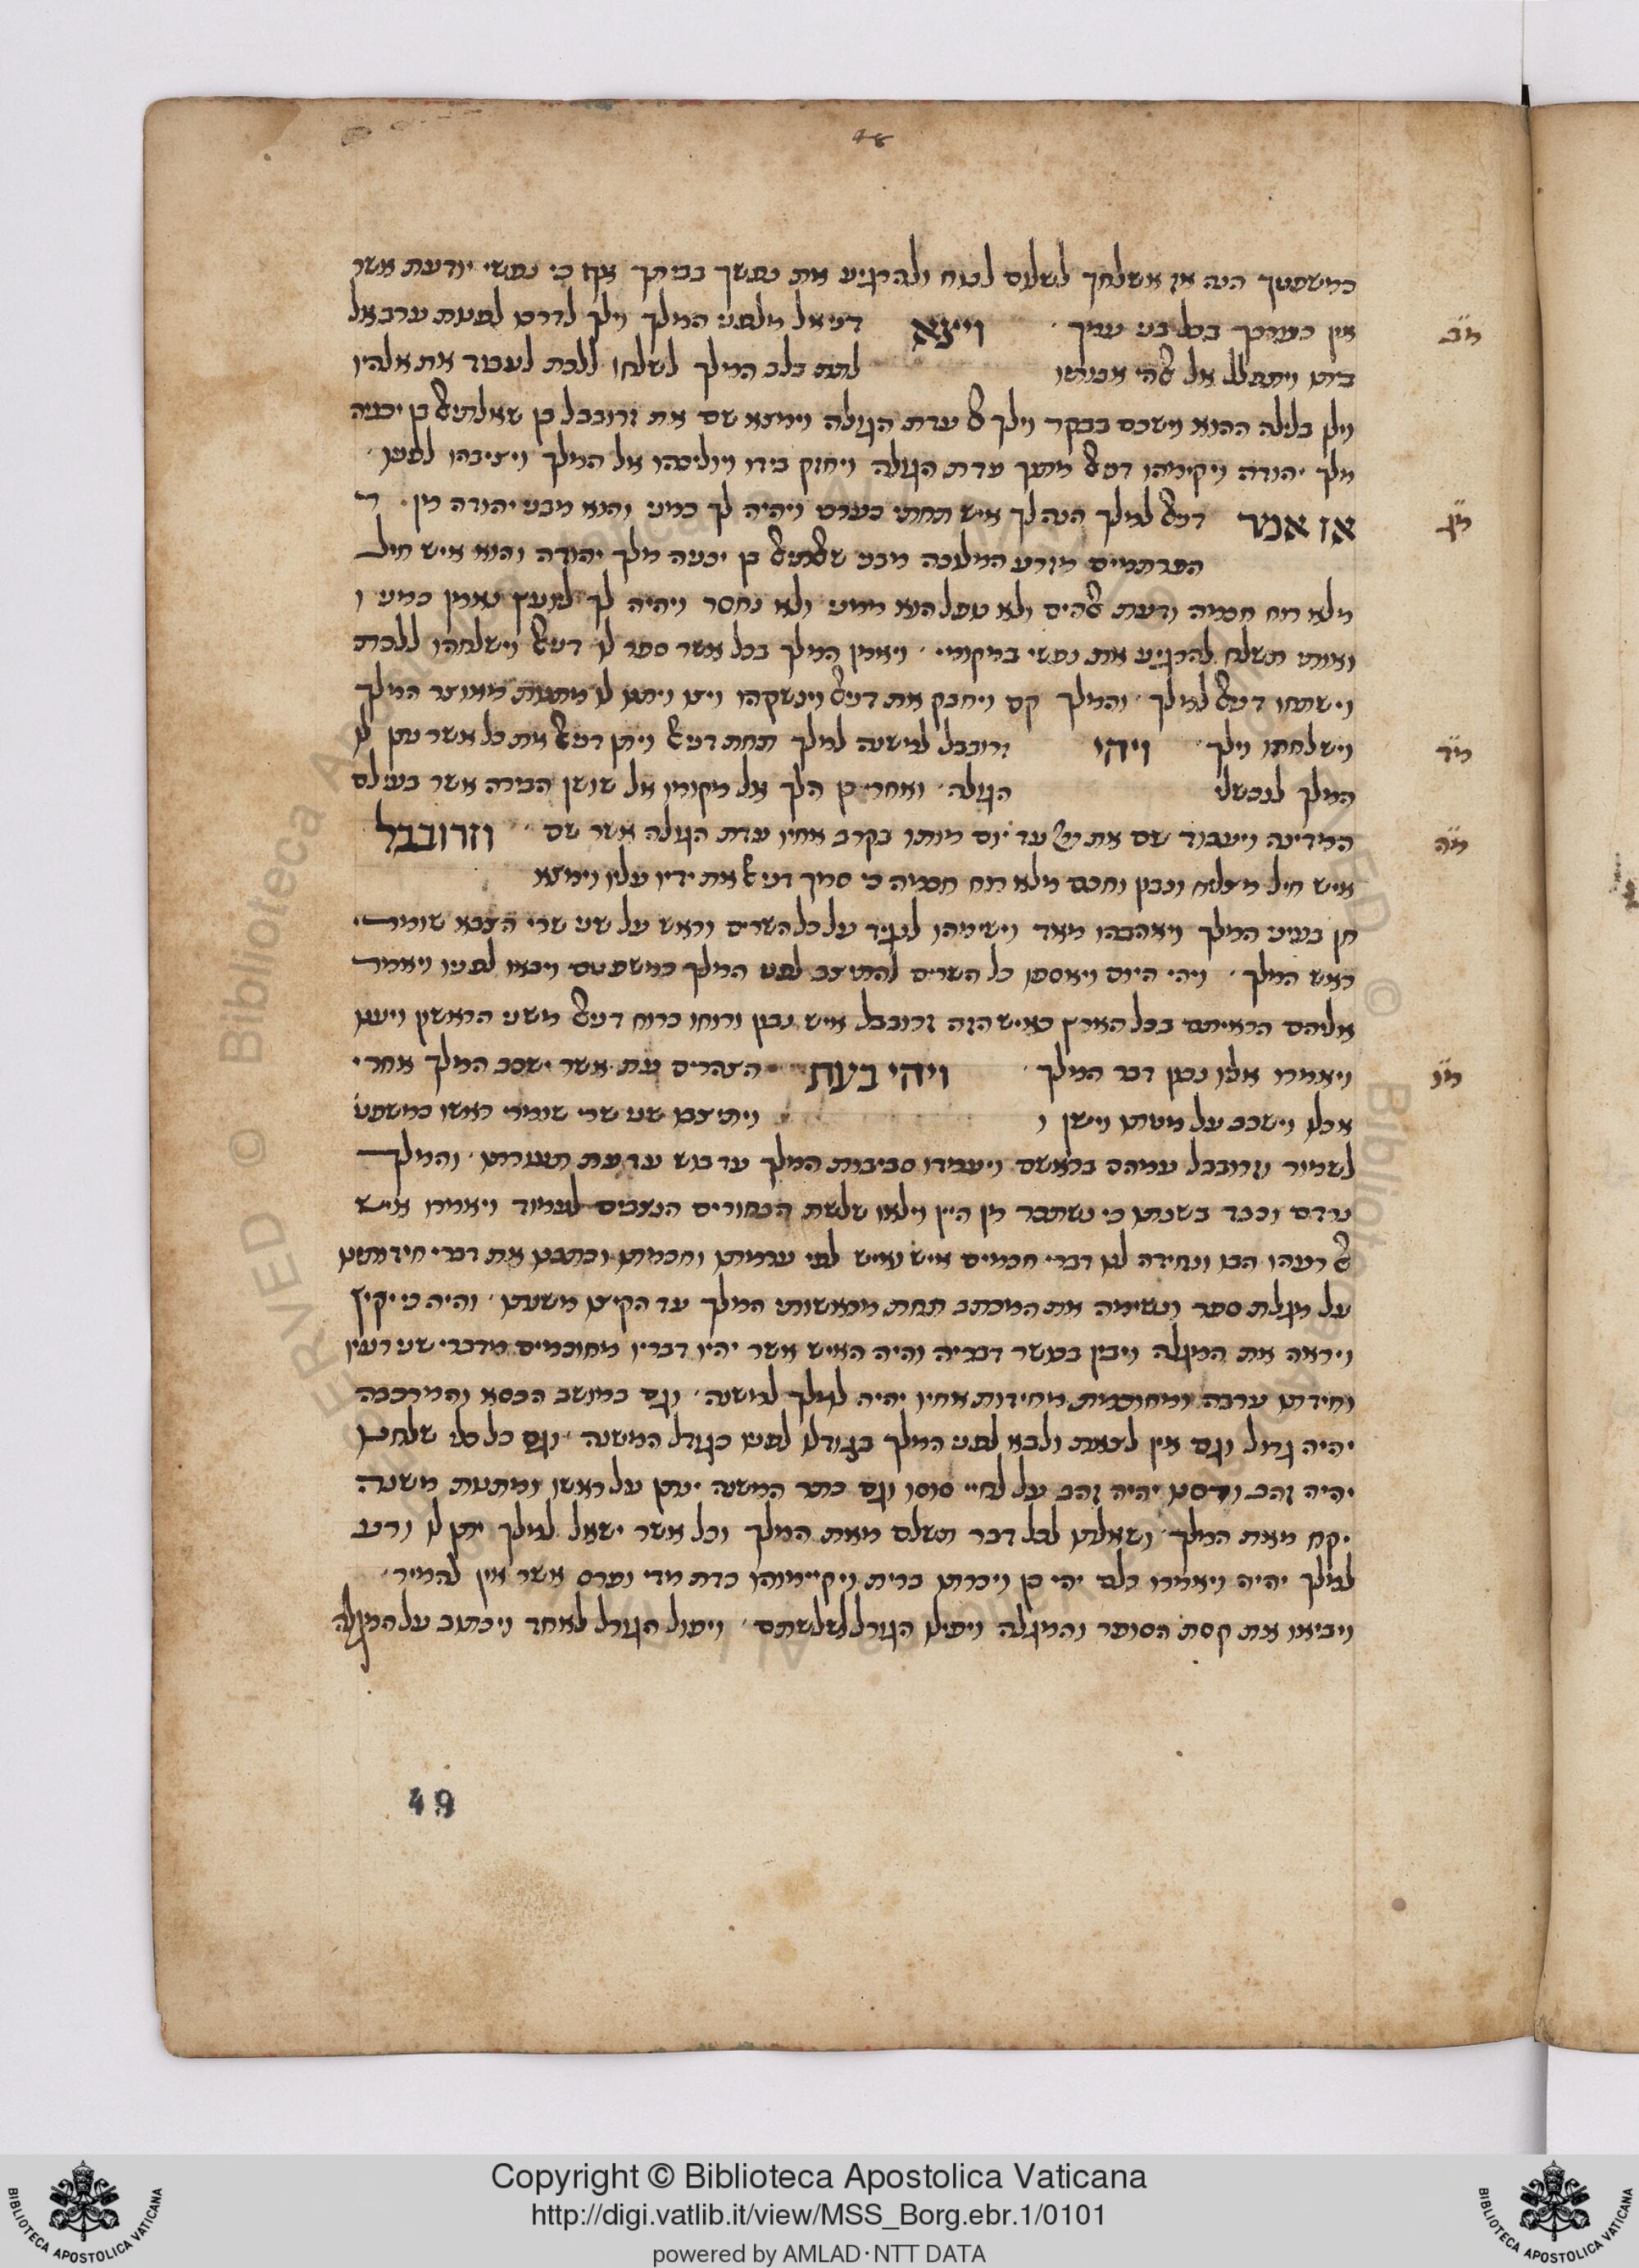 48
כמשפטך הנה אז אשלחך לשלום לנוח ולהרגיע את נפשך בביתך אך כי נפשי יודעת אשר
מ״ב
אין כערכך בכל בני עמך ׳ ויצא דניאל מלפני המלך וילך לדרכו לפנות ערב אל
ביתו ויתפלל אל אלהי אבותיו לתת בלב המלך לשלחו ללכת לעבוד את אלהיו
וילן בלילה ההוא וישכם בבקר וילך אל עדת הגולה וימצא שם את זרובבל בן שאלתיאל בן יכניה
מלך יהודה ויקימהו דניאל מתוך עדת הגולה ויחזק בידו ויוליכהו אל המלך ויציבהו לפניו ׳
מ״ג
אז אמר דניאל למלך הנה לך איש תחתי כערכי ויהיה לך כמוני והוא מבני יהודה מן
הפרתמים מזרע המלוכה מבני שאלתיאל בן יכניה מלך יהודה והוא איש חיל
מלא רוח חכמה ודעת אלהים ולא נופל הוא ממני ולא נחסר ויהיה לך ליועץ נאמן כמוני ו
ואותי תשלח להרגיע את נפשי במקומי ׳ ויאמן המלך בכל אשר ספר לו דניאל וישלחהו ללכת
וישתחו דניאל למלך ׳ והמלך קם ויחבק את דניאל וינשקהו ויתן לו מתנות מאוצר המלך
מ״ד
וישלחהו וילך ׳ ויהי זרובבל למשנה למלך תחת דניאל ויתן דניאל את כל אשר נתן לו
המלך הגולה ׳ ואחרי כן הלך אל מקומו אל שושן הבירה אשר בעילם
מ״ה
המדינה ויעבוד שם את יי עד יום מותו בקרב אחיו עדת הגולה אשר שם ׳ וזרובבל
איש חיל מצליח ונבון וחכם מלא רוח חכמה כי סמך דניאל את ידיו עליו וימצא
חן בעיני המלך ויאהבהו מאד וישימהו לנגיד על כל השרים וראש על שני שרי הצבא שומרי
ראש המלך ׳ ויהי היום ויאספו כל השרים להתיצב לפני המלך כמשפטם ויבאו לפניו ויאמר
אליהם הראיתם בכל הארץ כאיש הזה זרובבל איש נבון ורוחו כרוח דניאל משנה הראשון ויענו
מ״ו
ויאמרו אליו נכון דבר המלך ׳ ויהי בעת הצהרים עת אשר ישכב המלך אחרי
אכלו וישכב על מטתו ויישן ו ויתיצבו שני שרי שומרי ראשו כמשפט
לשמור וזרובבל עמהם בראשם ויעמדו סביבות המלך עד בוש עד עת תעוררתו ׳ והמלך
נרדם וכבד בשנתו כי נשתכר מן היין וילאו שלשת הבחורים הנצבים לעמוד ויאמרו איש
אל רעהו הבו ונחידה לנו דברי חכמים איש איש לפי ערמתו וחכמתו ונכתבו את דברי חידותינו
על מגלת ספר ונשימה את המכתב תחת מראשותי המלך עד הקיצו משנתו ׳ והיה כי יקיץ
ויראה את המגלה ויבין בפשר דבריה והיה האיש אשר יהיו דבריו מחוכמים מדברי שני רעיו
וחידתו ערבה ומחוכמת מחידות אחיו יהיה למלך למשנה ׳ וגם במושב הכסא והמרכבה
יהיה גדול וגם אין לצאת ולבא לפני המלך בגודלו לפניו כגודל המשנה ׳ וגם כל כלי שלחנו
יהיה זהב ורסנו יהיה זהב על לחיי סוסו וגם כתר המשנה ינתן על ראשו ומתנות משנה
יקח מאת המלך ׳ ושאלתו לכל דבר תשלם מאת המלך וכל אשר ישאל למלך יתן לו ורע
למלך יהיה ויאמרו כלם יהי כן ויכרתו ברית ויקיימוהו כדת מדי ופרס אשר אין להמיר ׳
ויביאו את קסת הסופר והמגלה ויפילו הגורל לשלשתם ׳ ויפול הגורל לאחד ויכתוב על המגלה
49
Copyright © Biblioteca Apostolica Vaticana
http://digi.vatlib.it/view/MSS_Borg.ebr.1/0101
powered by AMLAD·NTT DATA